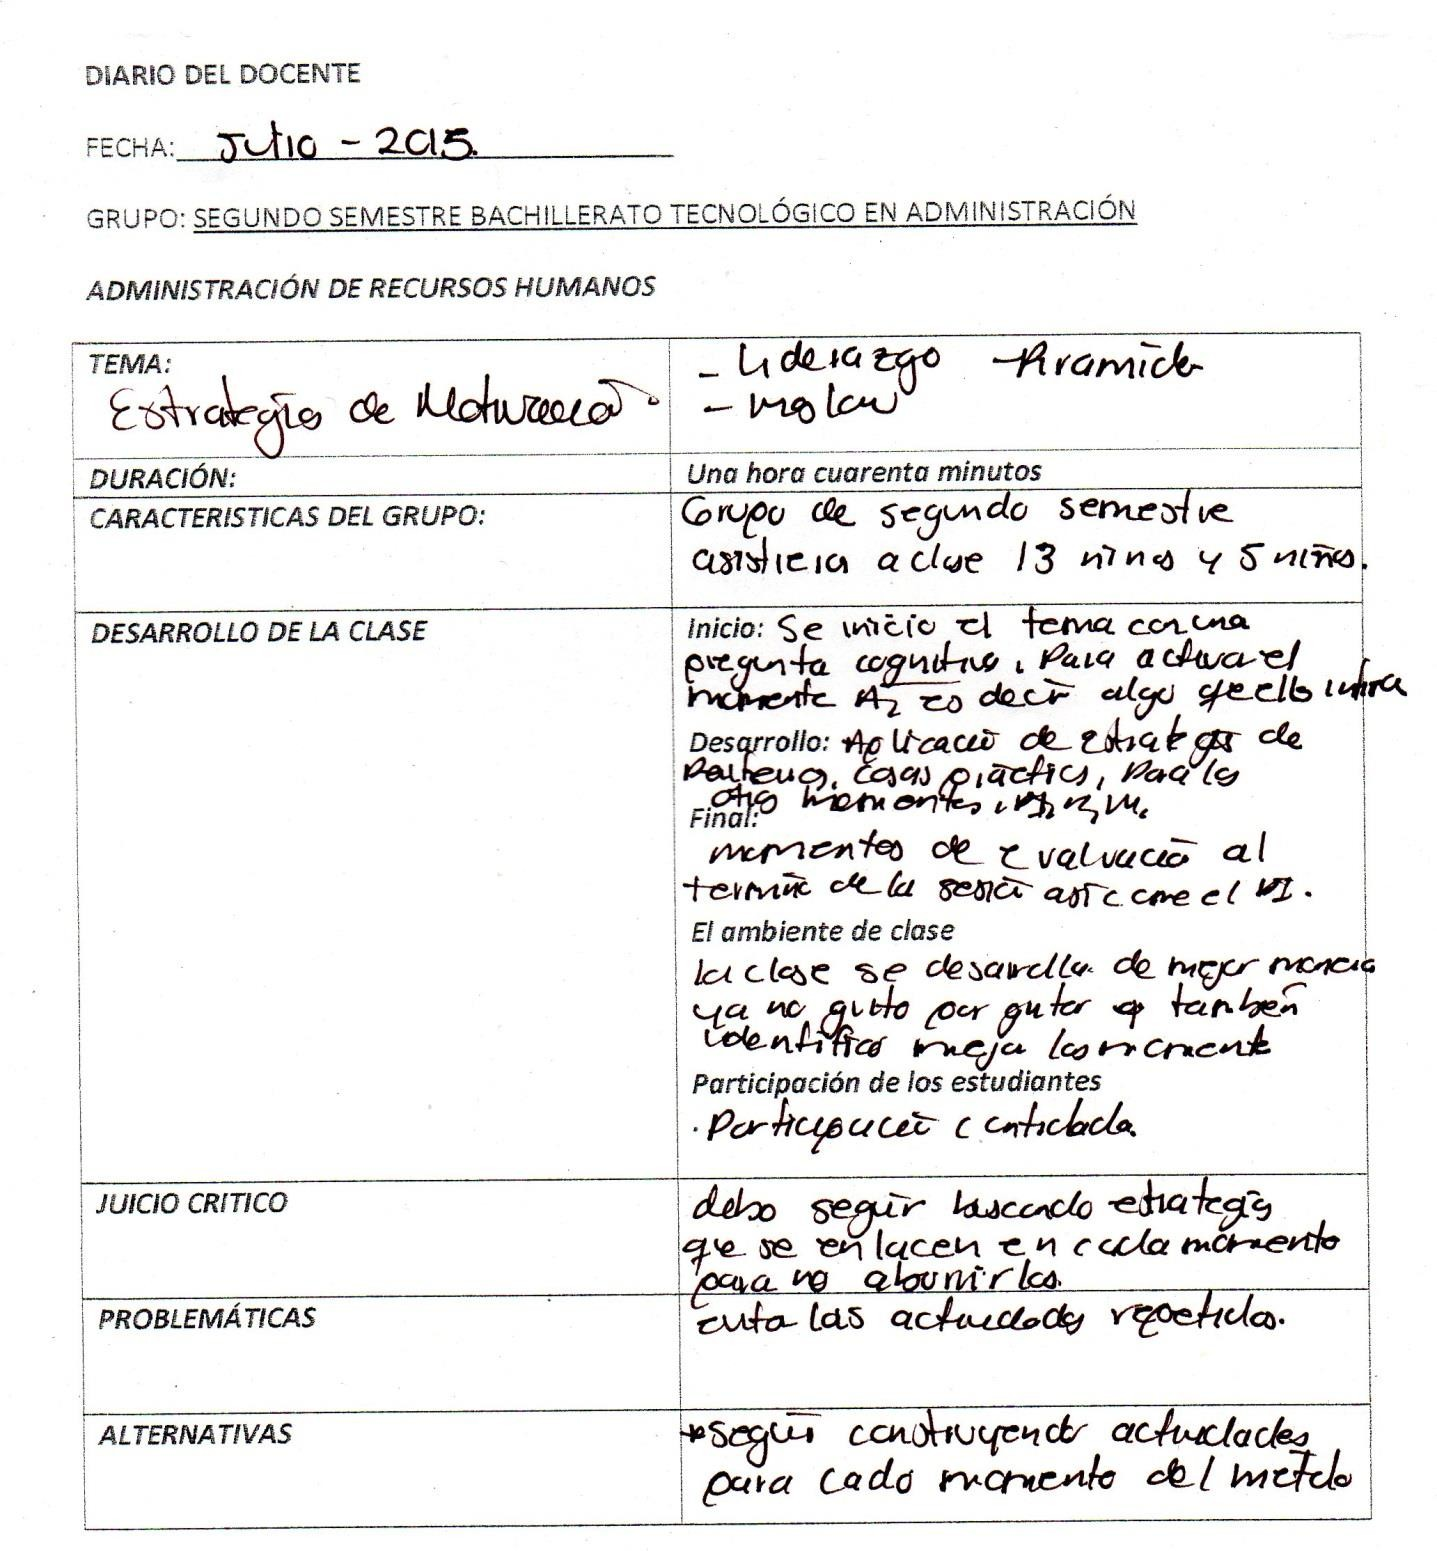 DIARIO DEL DOCENTE
FECHA: Julio - 2015.
GRUPO: SEGUNDO SEMESTRE BACHILLERATO TECNOLÓGICO EN ADMINISTRACIÓN
ADMINISTRACIÓN DE RECURSOS HUMANOS
TEMA:
Estrategias de Motivación
- Liderazgo - Piramide
- Maslow
DURACIÓN:
Una hora cuarenta minutos
CARACTERISTICAS DEL GRUPO:
Grupo de segundo semestre
asistieron a clase 13 niñas y 5 niños.
DESARROLLO DE LA CLASE
Inicio: Se inicio el tema con una
pregunta cognitiva, para activar el
momento A, es decir algo que ello
Desarrollo: Aplicación de estrategias de
casos practicos, para los
otros momentos
Final:
momentos de evaluación al
termino de la sesión asi como el VI.
El ambiente de clase
La clase se desarrolla de mejor manera
ya no grito por gritar también
identifico mejor los momento
Participación de los estudiantes
. Participación controlada.
JUICIO CRITICO
debo seguir buscando estrategias
que se enlacen en cada momento
para no aburrirlos.
PROBLEMÁTICAS
evitar las actividades repetidas.
ALTERNATIVAS
seguir construyendo actividades
para cada momento del metodo